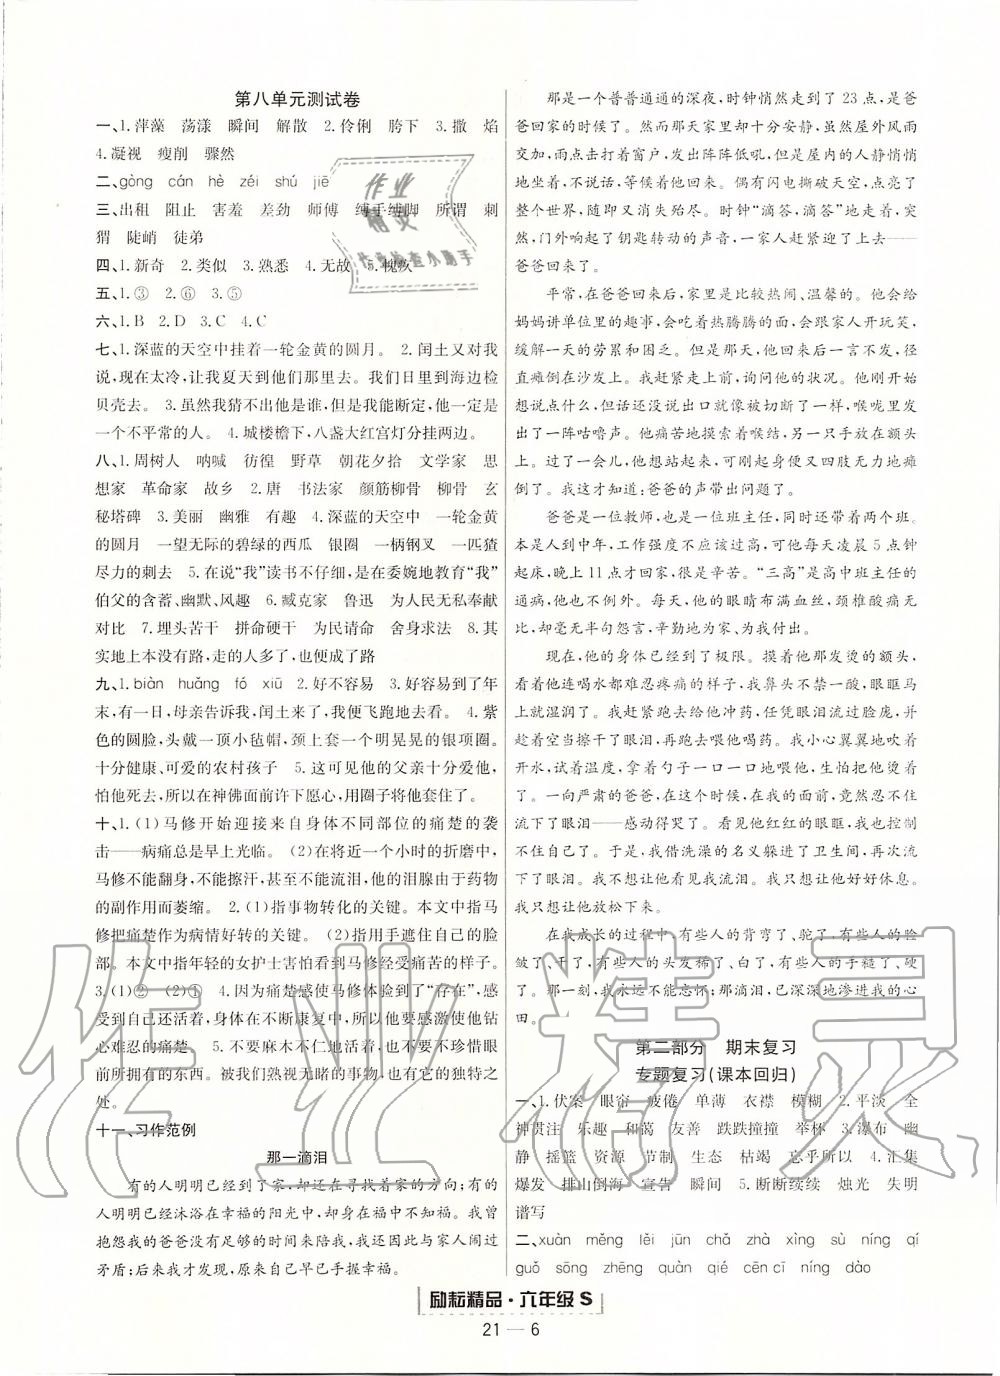 第八单元测试卷
一、1.萍藻 荡漾 瞬间 解散 2.伶俐 胯下 3.撒 焰
4.凝视 瘦削 骤然
二、gòng cán hè zéi shú jiē
三、出租 阻止 害羞 差劲 师傅 缚手缚脚 所谓 刺
猬 陡峭 徒弟
四、1.新奇 2.类似 3.熟悉 4.无故 5.愧疚
五、1.③ 2.⑥ 3.⑤
六、1.B 2.D 3.C 4.C
七、1.深蓝的天空中挂着一轮金黄的圆月。 2.闰土又对我
说,现在太冷,让我夏天到他们那里去。我们日里到海边检
贝壳去。 3.虽然我猜不出他是谁,但是我能断定,他一定是
一个不平常的人。 4.城楼檐下,八盏大红宫灯分挂两边。
八、1.周树人 呐喊 彷徨 野草 朝花夕拾 文学家 思
想家 革命家 故乡 2.唐 书法家 颜筋柳骨 柳骨 玄
秘塔碑 3.美丽 幽雅 有趣 4.深蓝的天空中 一轮金黄
的圆月 一望无际的碧绿的西瓜 银圈 一柄钢叉 一匹猹
尽力的刺去 5.在说“我”读书不仔细,是在委婉地教育“我”
伯父的含蓄、幽默、风趣 6.臧克家 鲁迅 为人民无私奉献
对比 7.埋头苦干 拼命硬干 为民请命 舍身求法 8.其
实地上本没有路,走的人多了,也便成了路
九、1.biàn huǎng fó xiū 2.好不容易 3.好容易到了年
末,有一日,母亲告诉我,闰土来了,我便飞跑地去看。 4.紫
色的圆脸,头戴一顶小毡帽,颈上套一个明晃晃的银项圈。
十分健康、可爱的农村孩子 5.这可见他的父亲十分爱他,
怕他死去,所以在神佛面前许下愿心,用圈子将他套住了。
十、1.(1)马修开始迎接来自身体不同部位的痛楚的袭
击——病痛总是早上光临。 (2)在将近一个小时的折磨中,
马修不能翻身,不能擦汗,甚至不能流泪,他的泪腺由于药物
的副作用而萎缩。 2.(1)指事物转化的关键。本文中指马
修把痛楚作为病情好转的关键。 (2)指用手遮住自己的脸
部。本文中指年轻的女护士害怕看到马修经受痛苦的样子。
3.(1)② (2)① 4.因为痛楚使马修体验到了“存在”,感
受到自己还活着,身体在不断康复中,所以他要感激使他钻
心难忍的痛楚。 5.不要麻木不仁地活着,也不要不珍惜眼
前所拥有的东西。被我们熟视无睹的事物,也有它的独特之
处。
十一、习作范例
那一滴泪
有的人明明已经到了家,却还在寻找着家的方向;有的
人明明已经沐浴在幸福的阳光中,却身在福中不知福。我曾
抱怨我的爸爸没有足够的时间陪我,甚至与家人闹过
矛盾;后来我才发现,原来我早已手握幸福。
那是一个普普通通的深夜,时钟悄然走到了 23 点,是爸
爸回家的时候了。然而那天家里却十分安静,虽然屋外风雨
交加,雨点击打着窗户,发出阵阵低吼,但是屋内的人静悄悄
地坐着,不说话,等候着他回来。偶有闪电撕破天空,点亮了
整个世界,随即又消失殆尽。时钟“滴答,滴答”地走着,突
然,门外响起了钥匙转动的声音,一家人赶忙迎了上去——
爸爸回来了。
平常,在爸爸回来后,家里是比较热闹、温馨的。他会给
妈妈讲单位里的趣事,会吃着热腾腾的面,会跟家人开玩笑,
缓解一天的劳累和困乏。但是那天,他回来后一言不发,径
直瘫倒在沙发上。我赶紧走上前,询问他的状况。他刚开始
想说点什么,但话还没说出口就像被切断了一样,喉咙里发
出了一阵咕噜声。他痛苦地摸索着喉结,另一只手放在额头
上。过了一会儿,他想站起来,可刚起身便又四肢无力地瘫
倒了。我这才知道:爸爸的声带出问题了。
爸爸是一位教师,也是一位班主任,同时还带着两个班。
本是人到中年,工作强度不应该过高,可他每天凌晨 5 点钟
起床,晚上 11 点才回家,很是辛苦。“三高”是高中班主任的
通病,他也不例外。每天,他的眼睛布满血丝,颈椎酸痛无
比,却毫无半句怨言,辛勤地为家、为我付出。
现在,他的身体已经到了极限。摸着他那发烫的额头,
看着他连喝水都难忍疼痛的样子,我鼻头不禁一酸,眼眶马
上就湿润了。我赶紧跑去给他冲药,任凭眼泪流过脸庞,并
趁着空当擦干了眼泪,再跑去喂他喝药。我小心翼翼地吹着
开水,试着温度,拿着勺子一口一口地喂他,生怕把他烫着
了。一向严肃的爸爸,在这个时候,在我的面前,竟然忍不住
流下了眼泪——感动得哭了。看见他红红的眼眶,我也控制
不住自己了。于是,我借洗澡的名义躲进了卫生间,再次流
下了眼泪。我不想让他看见我流泪。我只想让他好好休息。
我只想让他放松下来。
在我成长的过程中,有些人的背弯了、驼了,有些人的脸
皱了、干了,有些人的头发稀了、白了,有些人的手糙了、硬
了。那一刻,我永远不能忘怀;那滴泪,已深深地渗进我的心
田。
第二部分 期末复习
专题复习(课本回归)
一、1.伏案 眼帘 疲倦 单薄 衣襟 模糊 2.平淡 全
神贯注 乐趣 和蔼 友善 跌跌撞撞 举杯 3.瀑布 幽
静 摇篮 资源 节制 生态 枯竭 忘乎所以 4.汇集
爆发 排山倒海 宣告 瞬间 5.断断续续 烛光 失明
谱写
二、xuàn měng lěi jūn chǎ zhà xìng sù níng qí
guǒ sōng zhēng quàn qié cēn cī níng dào
励耘精品·六年级 S
21 — 6
作业精灵
作业检查小助手
作业精灵